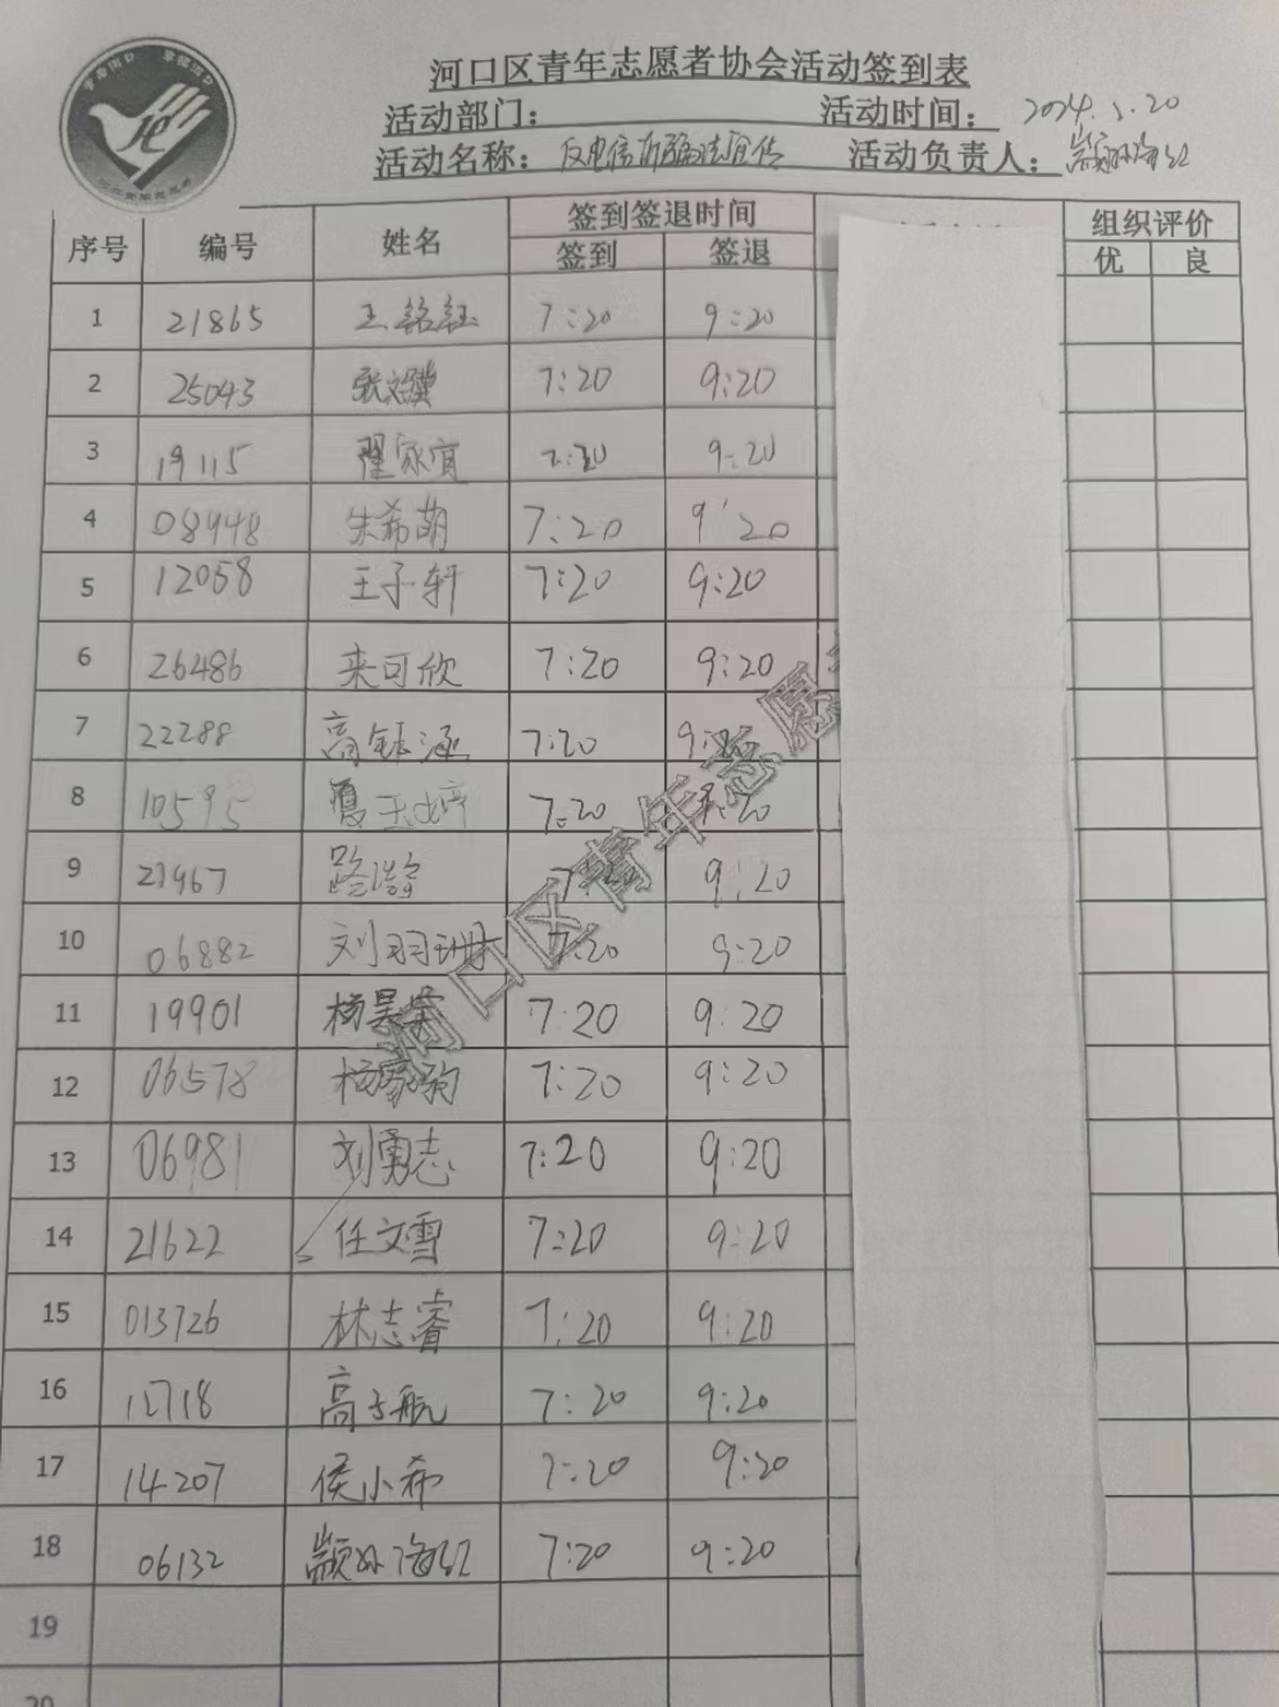 河口区青年志愿者协会活动签到表
活动部门： 活动时间： 2024.5.20
活动名称： 反电信诈骗法宣传 活动负责人：
序号 编号 姓名 签到签退时间 组织评价
签到 签退 优 良
1 21865 王铭钰 7:20 9:20
2 25043 张文骥 7:20 9:20
3 19115 翟家宜 7:20 9:20
4 08948 朱希萌 7:20 9'20
5 12058 王子轩 7:20 9:20
6 26486 来可欣 7:20 9:20
7 22288 高钰涵 7:20 9:20
8 10595 夏玉婷 7:20 9:20
9 21967 路浩 7:20 9:20
10 06882 刘羽珊 7:20 9:20
11 19901 杨昊 7:20 9:20
12 06578 杨家驹 7:20 9:20
13 06981 刘勇志 7:20 9:20
14 21622 任文雪 7:20 9:20
15 013726 林志睿 7:20 9:20
16 12718 高子航 7:20 9:20
17 14207 侯小希 7:20 9:20
18 06132 7:20 9:20
19
20
河口区青年志愿